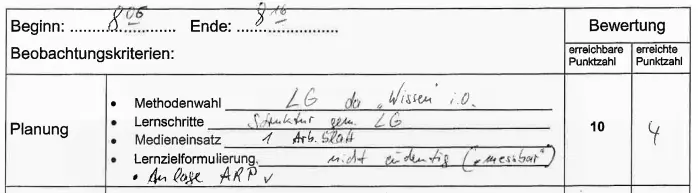 Beginn: 8 06 Ende: 8 16 Bewertung
Beobachtungskriterien: erreichbare Punktzahl erreichte Punktzahl
Planung 10 4
• Methodenwahl LG da „Wissen" i.O.
• Lernschritte Struktur gem. LG
• Medieneinsatz 1 Arb.blatt
• Lernzielformulierung. nicht eindeutig („messbar")
• Anlage ARP ✓